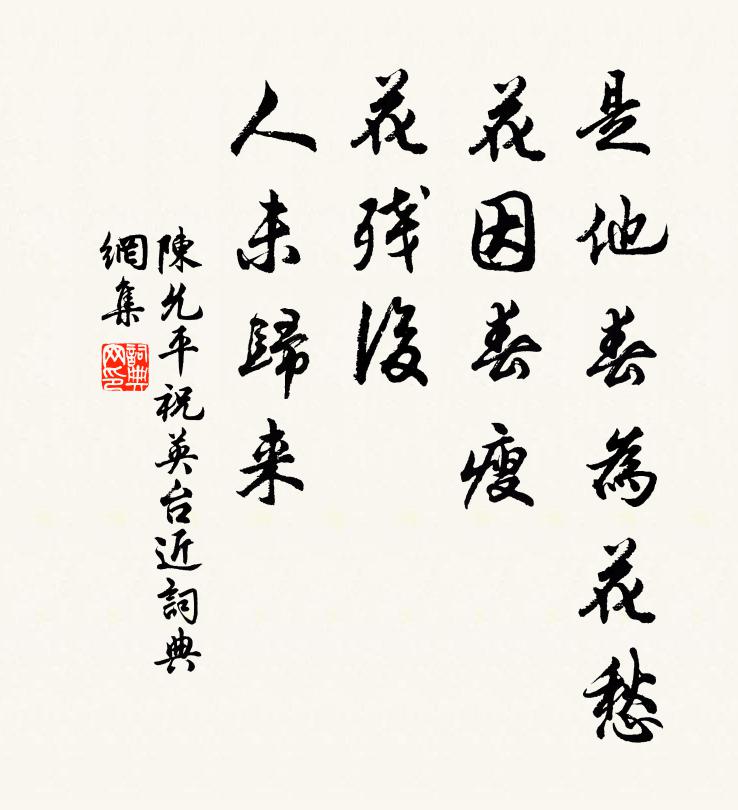 是他春為花愁
花因春瘦
花残後
人未歸来
陳允平祝英台近詞典
網集
詞典
网印